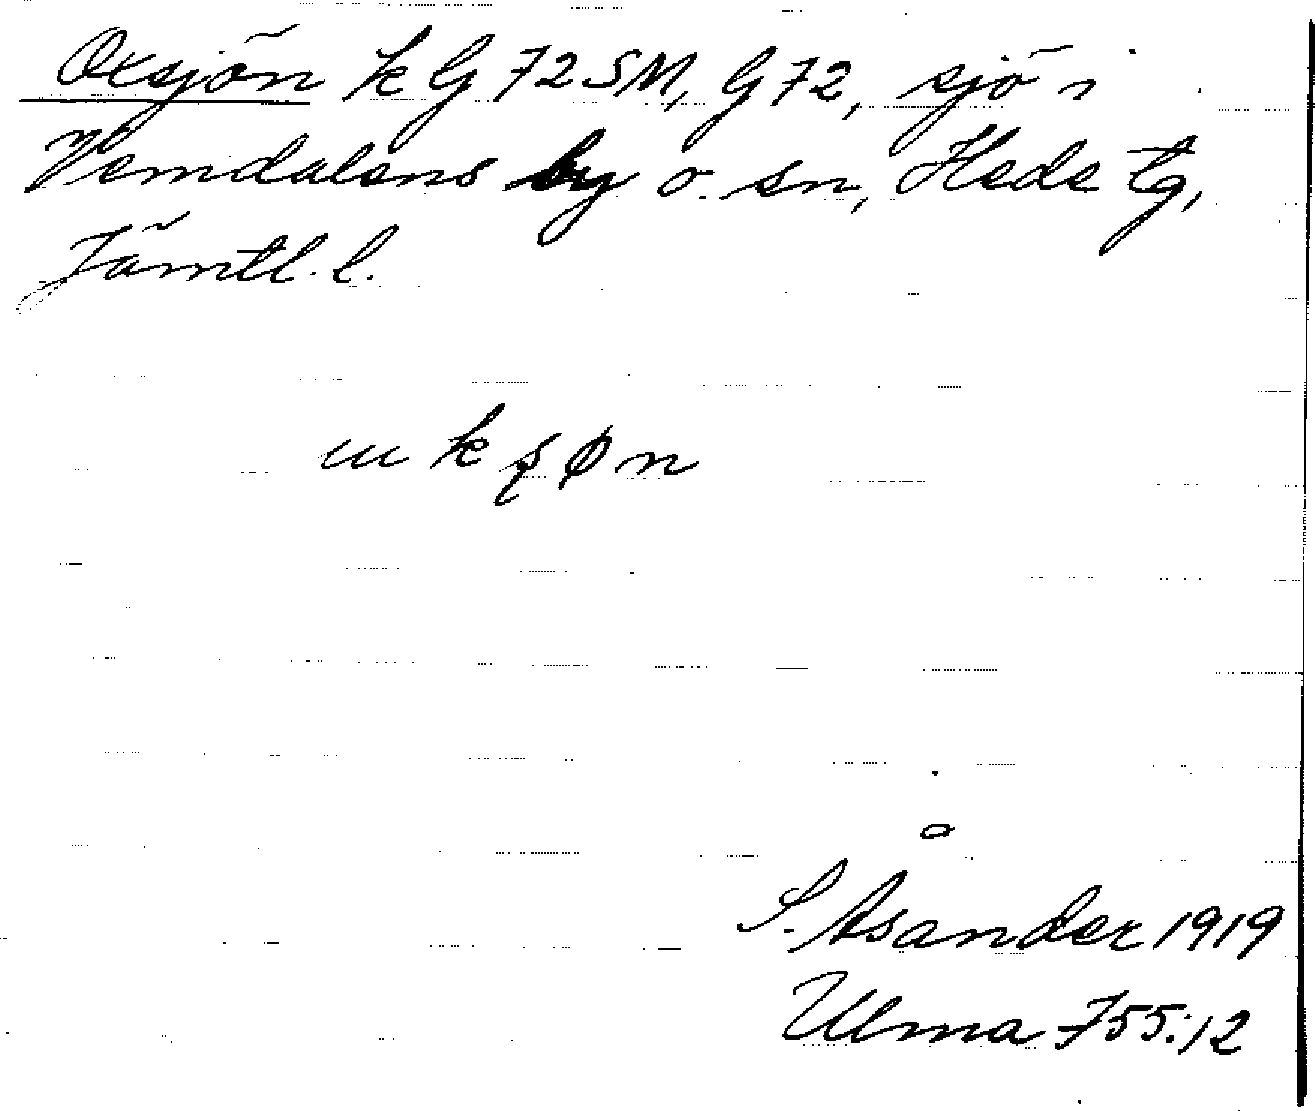 Oxsjön k G 72 SM, G 72, sjö i
Vemdalens by o. sn, Hede tg,
Jämtl. l.
S. Åsander 1919
Ulma 755:12